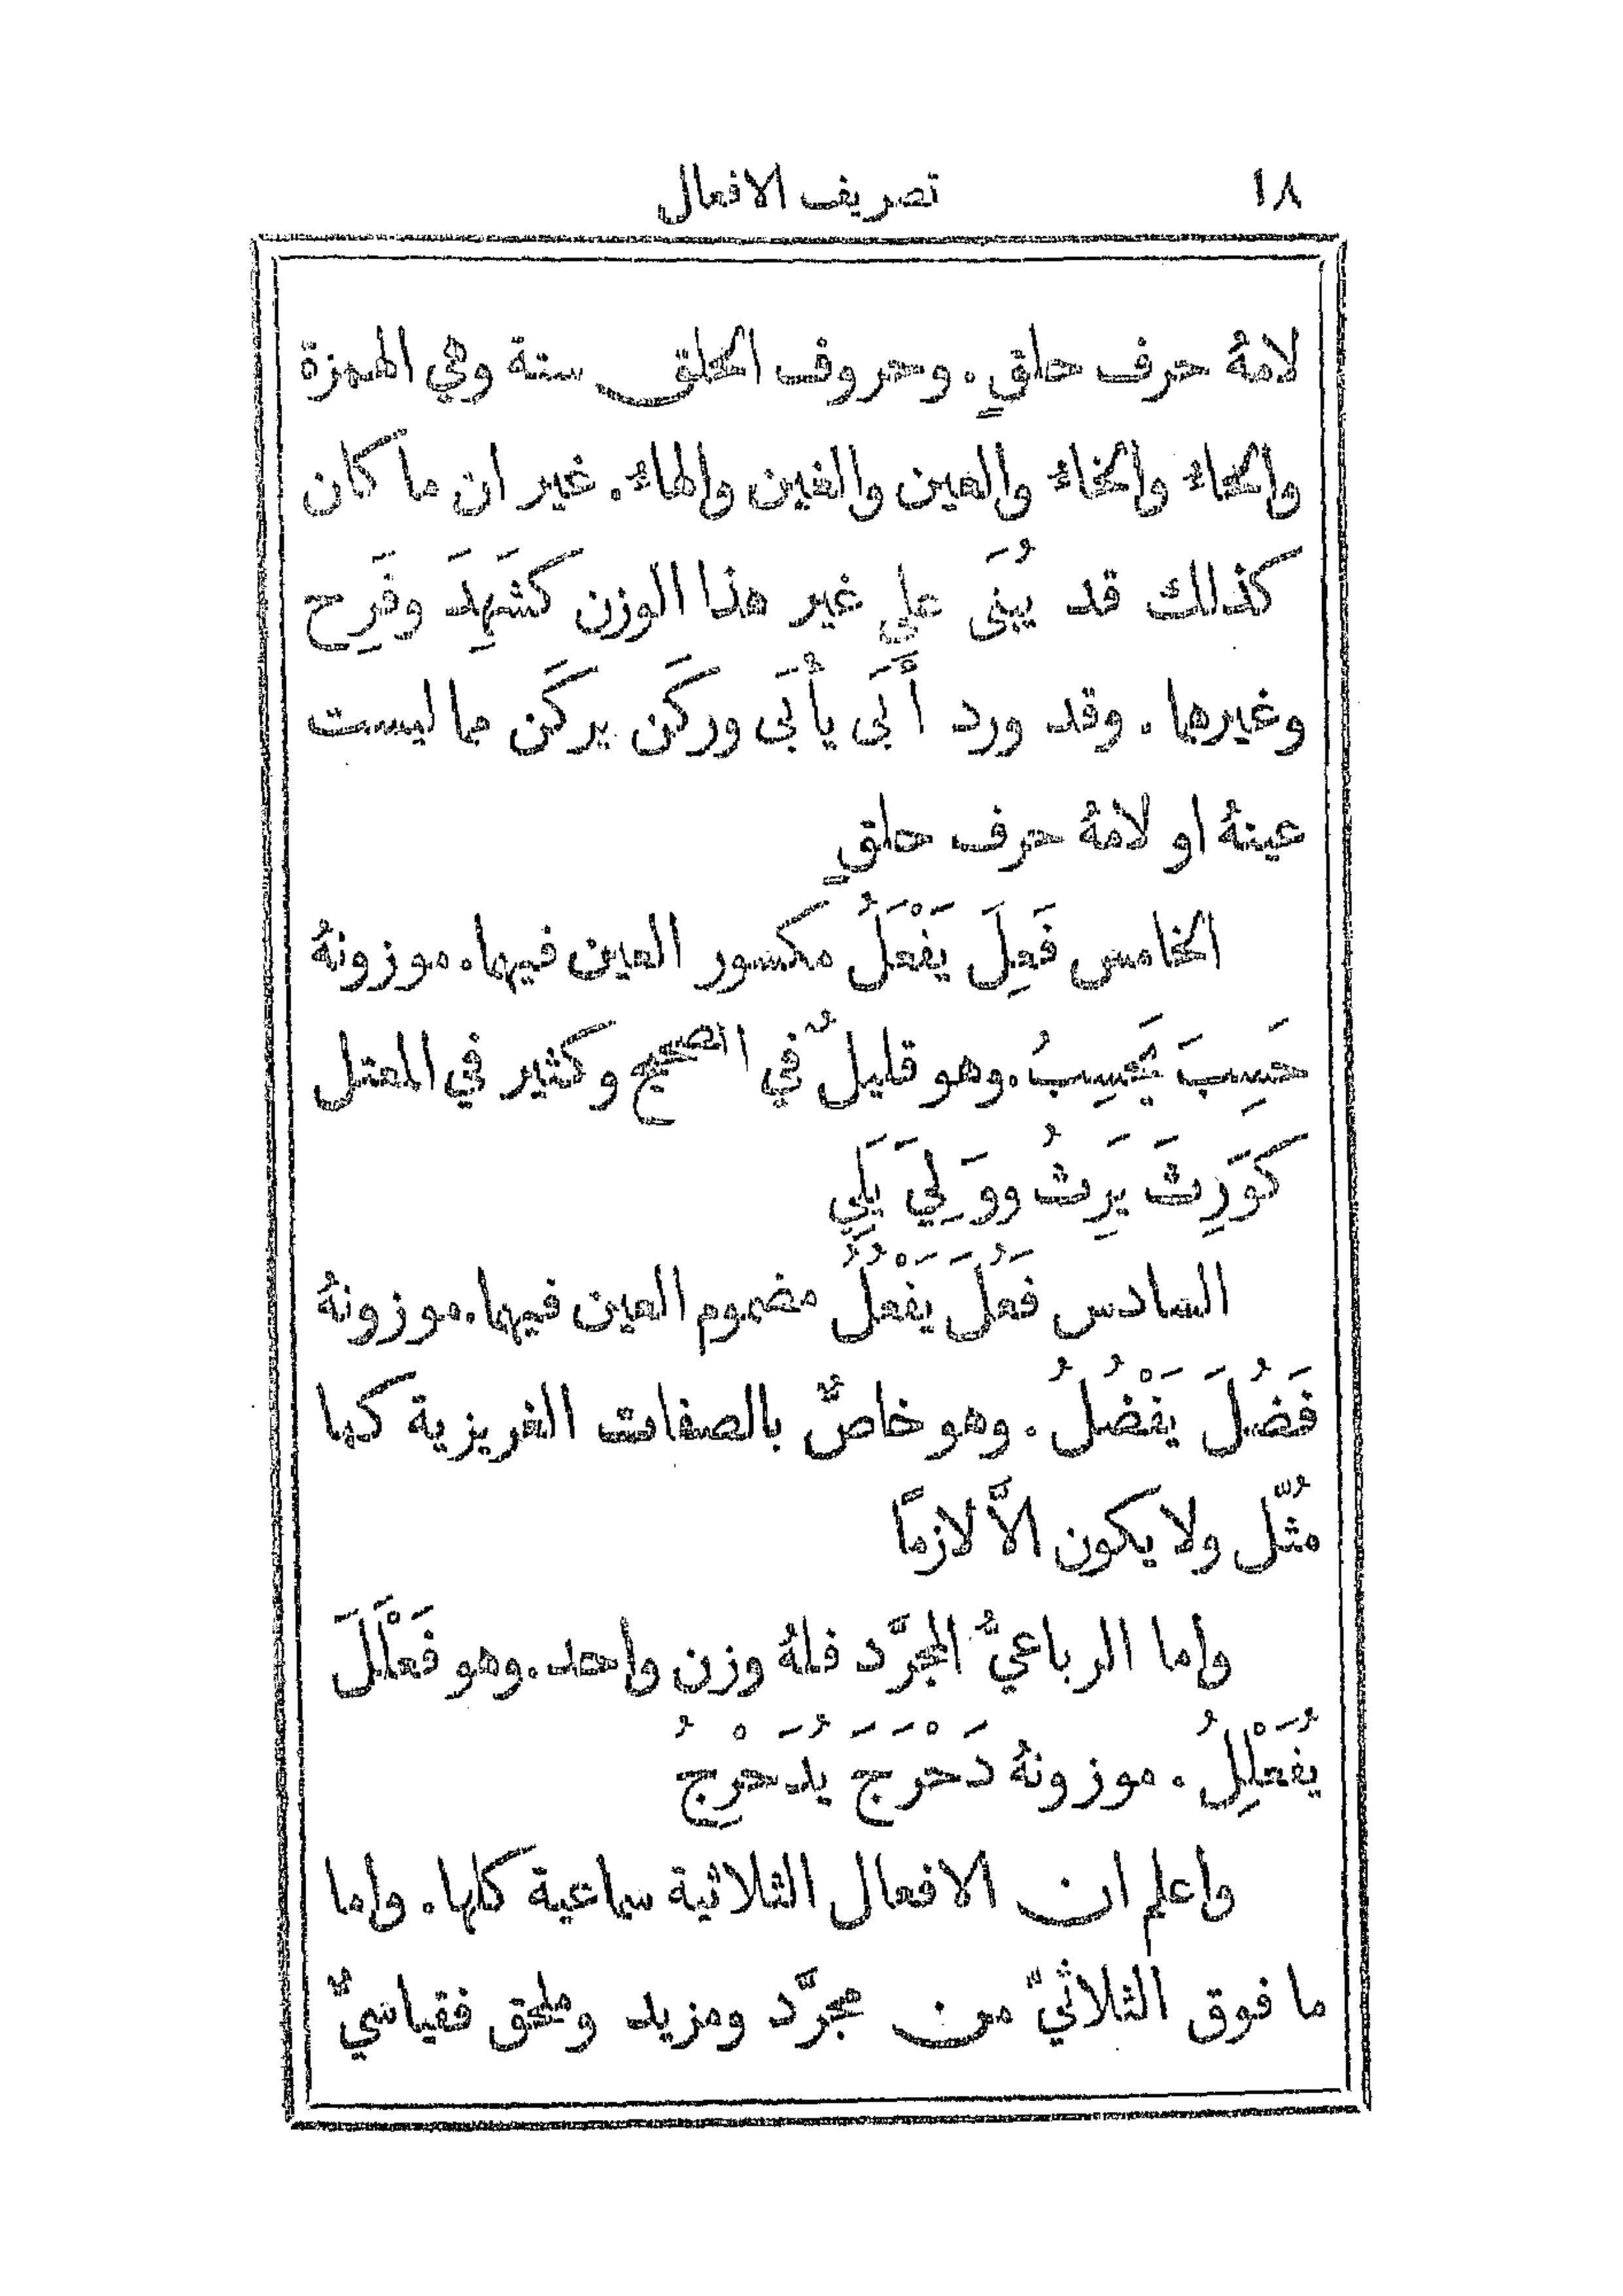 ١٨ تصريف الافعال
لامهُ حرف حلقٍ. وحروف الحلق ستة وهي الهمزة
والحاءُ والخاءُ والعين والغين والهاءُ. غير ان ما كان
كذلك قد يُبنَى على غير هذا الوزن كَشَهِدَ وفَرِح
وغيرها. وقد ورد أَبَى يأْبَى وركَن يركَن مما ليست
عينهُ او لامهُ حرف حلقٍ
الخامس فَعِلَ يَفْعَلُ مكسور العين فيهما. موزونهُ
حَسِبَ يَحسِبُ. وهو قليلٌ في الصحيح وكثير في المعتل
كوَرِثَ يَرِثُ ووَلِيَ يَلِي
السادس فَعُلَ يَفْعُلُ مضموم العين فيهما. موزونهُ
فَضُلَ يَفْضُلُ. وهو خاصٌّ بالصفات الغريزية كما
مُثِّل ولا يكون الَّا لازمًا
واما الرباعيُّ المجرَّد فلهُ وزن واحد. وهو فَعْلَلَ
يُفَعْلِلُ. موزونهُ دَحْرَجَ يُدَحْرِجُ
واعلم ان الافعال الثلاثية سماعية كلها. واما
ما فوق الثلاثيِّ من مجرَّد ومزيد وملحق فقياسيٌّ